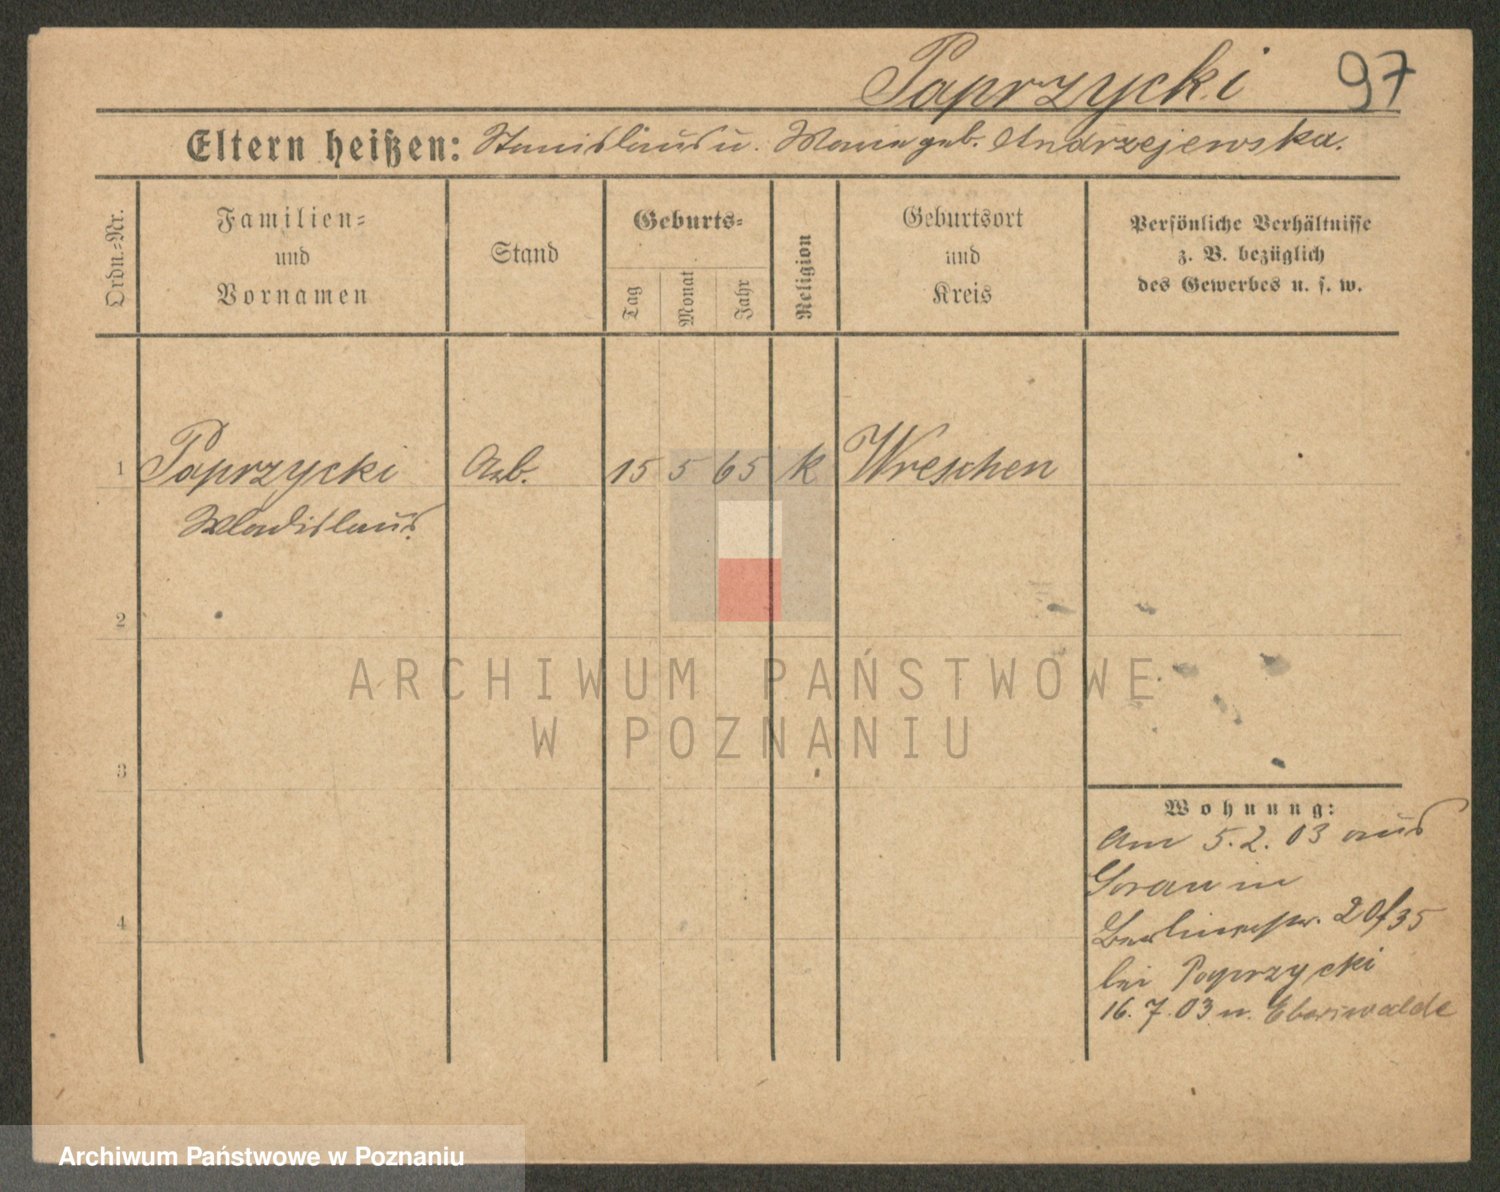 Paprzycki 97
Eltern heißen: Stanislaus u. Maria geb. Andrzejewska.
Ordn.-Nr.
Familien-
und
Vornamen
Stand
Geburts-
Tag
Monat
Jahr
Religion
Geburtsort
und
Kreis
Persönliche Verhältnisse
z. B. bezüglich
des Gewerbes u. s. w.
1 Paprzycki Arb. 15 5 65 k Wreschen
Wladislaus.
2
3
4
ARCHIWUM PAŃSTWOWE
W POZNANIU
Wohnung:
Am 5.2.03 aus
Goran in
Berlinerstr. 20/35
bei Paprzycki
16.7.03 n. Eberswalde
Archiwum Państwowe w Poznaniu